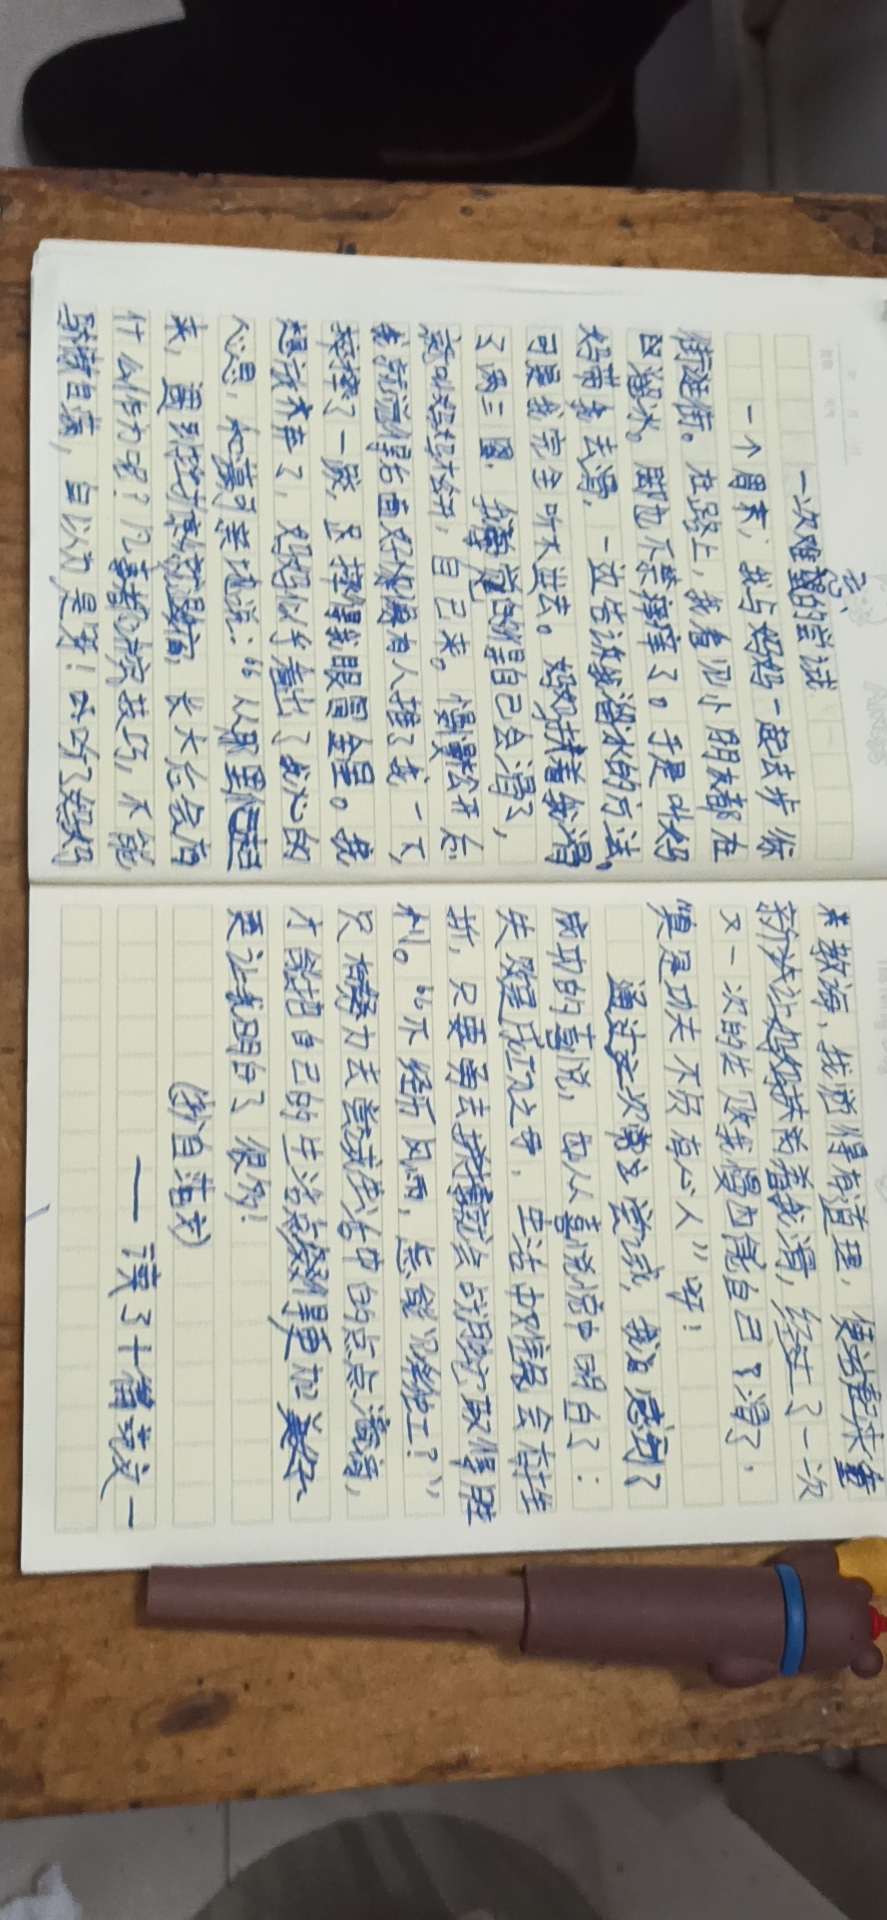 一次难忘的尝试
一个周末，我与妈妈一起去步行
街逛街。在路上，我看见小朋友都在
溜冰。脚也不禁痒痒了。于是叫妈
妈带我去滑，一边告诉我溜冰的方法，
可是我完全听不进去。妈妈扶着我滑
了两三圈，我觉的得自己会滑了，
就叫妈妈松开，自己来。慢慢松开后
我就觉得后面好像有人推了我一下，
摔了一跤，且摔得我眼冒金星。我
想放弃了，妈妈似乎看出了我心的
心思，和蔼可亲地说：“从那里
来，遇到挫折就退缩，长大
什么作为呢？凡事都有技巧，不能
骄傲自满，自以为是呀！”听了妈妈
教诲，我觉得有道理，便站起来重
新让妈妈扶着我滑，经过了一次
又一次的失败我慢慢自己滑了，
算是功夫不负有心人”呀！
通过这次尝试，我感到了
成功的喜悦，也从喜悦中明白了：
失败是成功之母，生活中难免会有挫
折，只要勇去拼搏就会战胜它取得胜
利。“不经历风雨，怎能见彩虹？”
只有努力去尝试生活中的点点滴滴，
才能把自己的生活得更加美好、
更让我明白了很多！
——读了十篇范文一